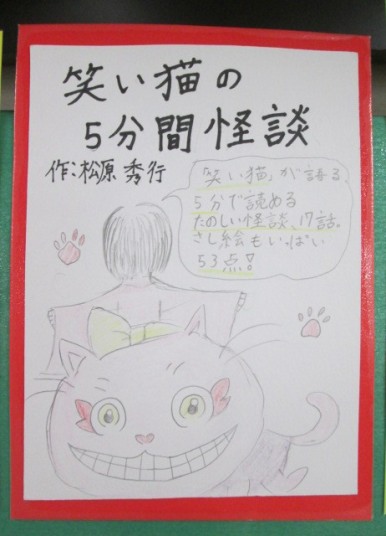 笑い猫の
5分間怪談
作:松原秀行
「笑い猫」が語る
5分で読める
たのしい怪談、17話。
さし絵もいっぱい
53点!